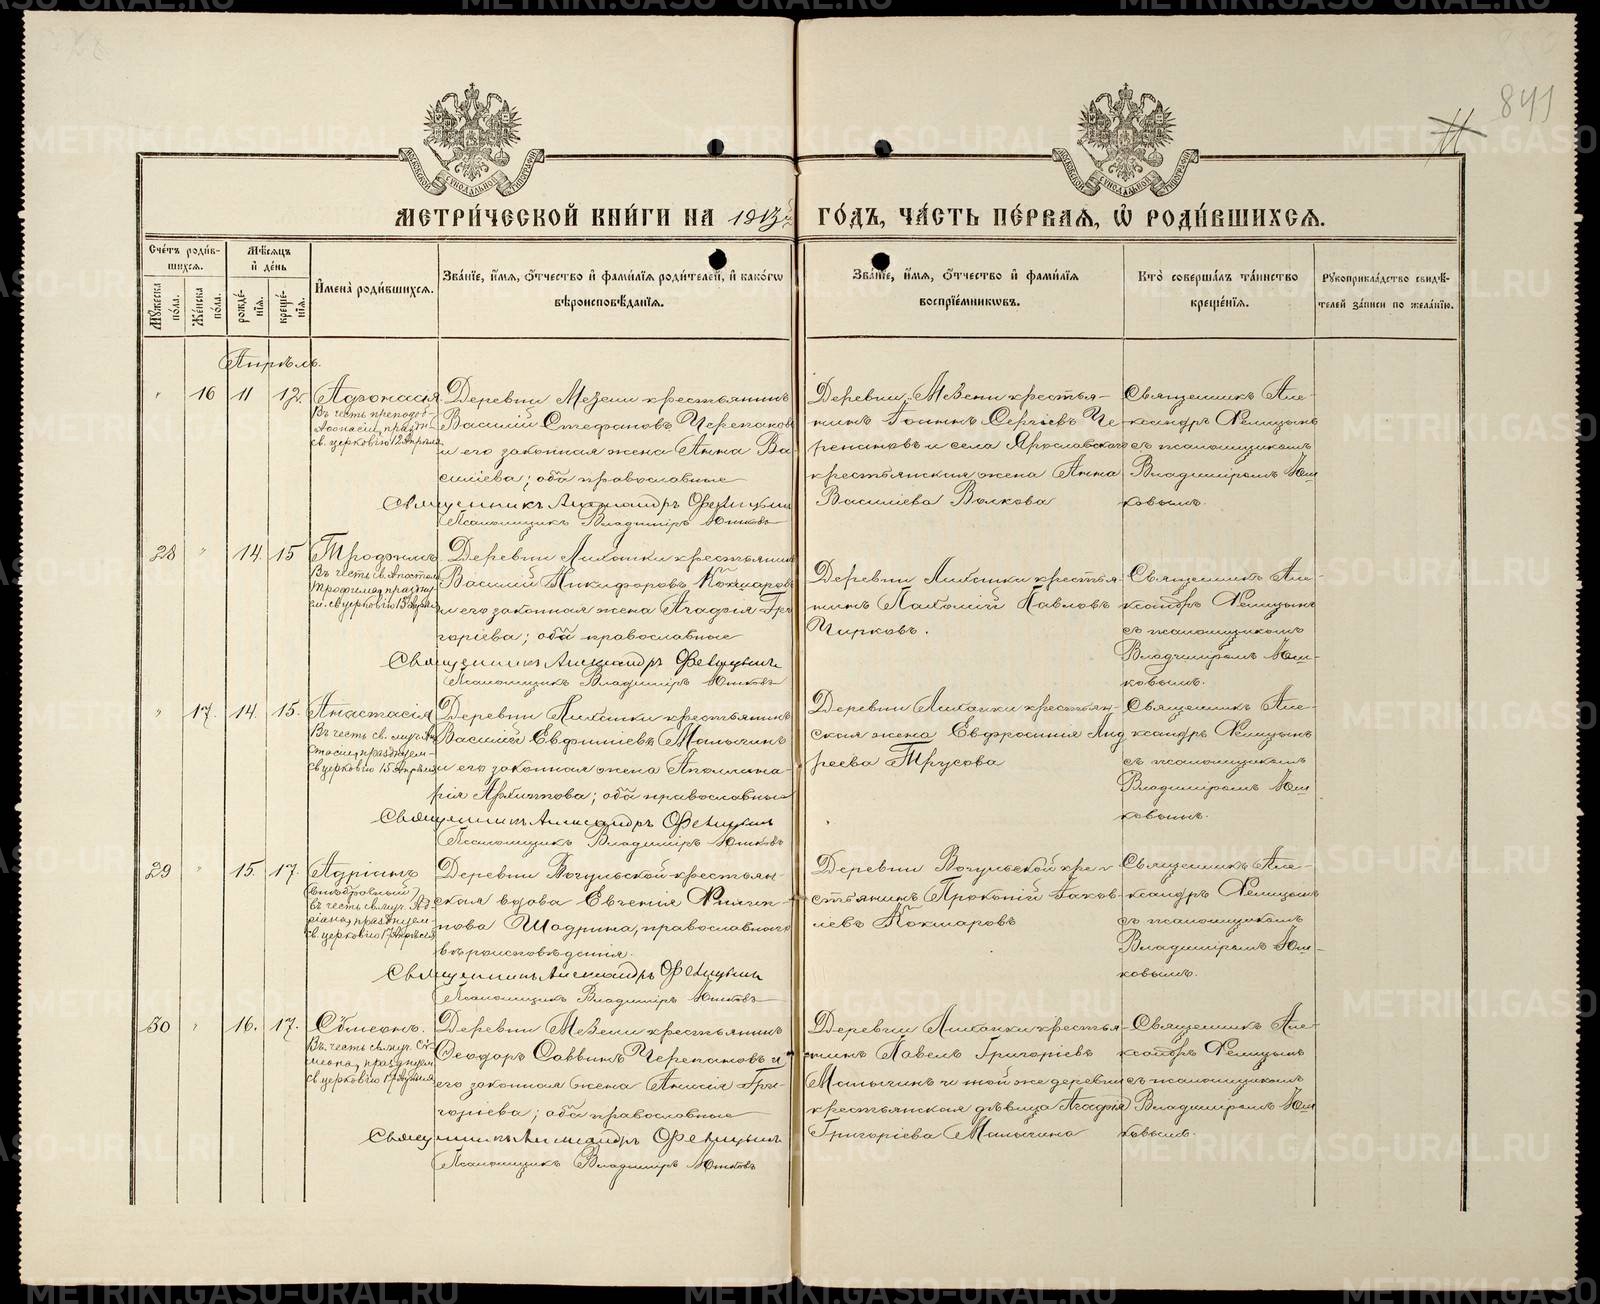 841
МЕТРИ́ЧЕСКОЙ КНИ́ГИ НА 1913 ГО́ДЪ, ЧА́СТЬ ПЕ́РВАЯ, Ѡ РОДИ́ВШИХСЯ.
Сче́тъ роди́вшихся.
Мꙋжеска по́ла.
Же́нска по́ла.
Мѣ́сяцъ и де́нь
рожде́нїя.
креще́нїя.
Имена̀ роди́вшихся.
Зва́нїе, и́мя, о́тчество и фами́лїя роди́телей, и како́гѡ вѣроисповѣ́данїя.
Зва́нїе, и́мя, о́тчество и фами́лїя воспрїе́мниковъ.
Кто̀ соверша́лъ та́инство креще́нїя.
Рꙋкоприкла́дство свидѣ́телей за́писи по жела́нїю.
Апрѣль.
" 16 11 12.
Афонасія
Въ честь преподоб-
Афонасіи, праздн.
св. церковію 12 апрѣля
Деревни Мезени крестьянинъ
Василій Стефановъ Черепановъ
и его законная жена Анна Ва-
силіева; оба православные
Священникъ Александръ Фелицынъ
Псаломщикъ Владиміръ Юшковъ
Деревни Мезени крестья-
нинъ Іоаннъ Сергіевъ Че-
репановъ и села Ярославскаго
крестьянская жена Анна
Василіева Волкова
Священникъ Але-
ксандръ Фелицынъ
съ псаломщикомъ
Владиміромъ Юш-
ковымъ.
28 " 14. 15
Трофимъ
Въ честь св. Апостола
Трофима, праздну-
ем. св. церковію 15 апрѣля
Василій Никифоровъ Кокшаровъ
и его законная жена Агафія Гри-
горіева; оба православные
Священникъ Александръ Фелицынъ
Псаломщикъ Владиміръ Юшковъ
нинъ Пахомій Павловъ
Чирковъ.
Священникъ Але-
ксандръ Фелицынъ
съ псаломщикомъ
Владиміромъ Юш-
ковымъ.
" 17. 14. 15.
Анастасія
Въ честь св. муч. Ана-
стасіи, празднуем.
св. церковію 15 апрѣля
Василій Евфиміевъ Малыгинъ
и его законная жена Аполлина-
рія Архиппова; оба православные
Священникъ Александръ Фелицынъ
Псаломщикъ Владиміръ Юшковъ
ская жена Евфросинія Анд
реева Трусова
Священникъ Але-
ксандръ Фелицынъ
съ псаломщикомъ
Владиміромъ Юш-
ковымъ.
29 " 15. 17.
Адріанъ
(внѣбрачный)
въ честь св. муч. Ад-
ріана, празднуем.
св. церковію 17 апрѣля
Деревни Вогульской крестьян-
ская вдова Евгенія Филип-
пова Шадрина, православнаго
вѣроисповѣданія.
Священникъ Александръ Фелицынъ
Псаломщикъ Владиміръ Юшковъ
Деревни Вогульской кре-
стьянинъ Прокопій Іаков-
левъ Кокшаровъ
Священникъ Але-
ксандръ Фелицынъ
съ псаломщикомъ
Владиміромъ Юш-
ковымъ.
30 " 16. 17.
Сѵмеонъ.
Въ честь св. муч. Сѵ-
меона, празднуем.
св. церковію 17 апрѣля
Деревни Мезени крестьянинъ
Ѳеодоръ Саввинъ Черепановъ и
его законная жена Анисія Гри-
горіева; оба православные
Священникъ Александръ Фелицынъ
Псаломщикъ Владиміръ Юшковъ
нинъ Павелъ Григоріевъ
Малыгинъ и той же деревни
крестьянская дѣвица Агафія
Григоріева Малыгина
Священникъ Але-
ксандръ Фелицынъ
съ псаломщикомъ
Владиміромъ Юш
ковымъ.
METRIKI.GASO-URAL.RU